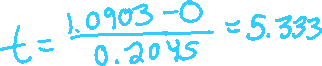 t = (1.0903 - 0) / 0.2045 = 5.333